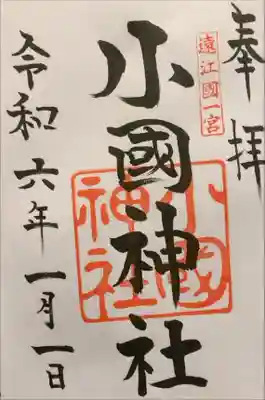 奉拝
遠江國一宮
小國神社
小國神社
令和六年一月一日